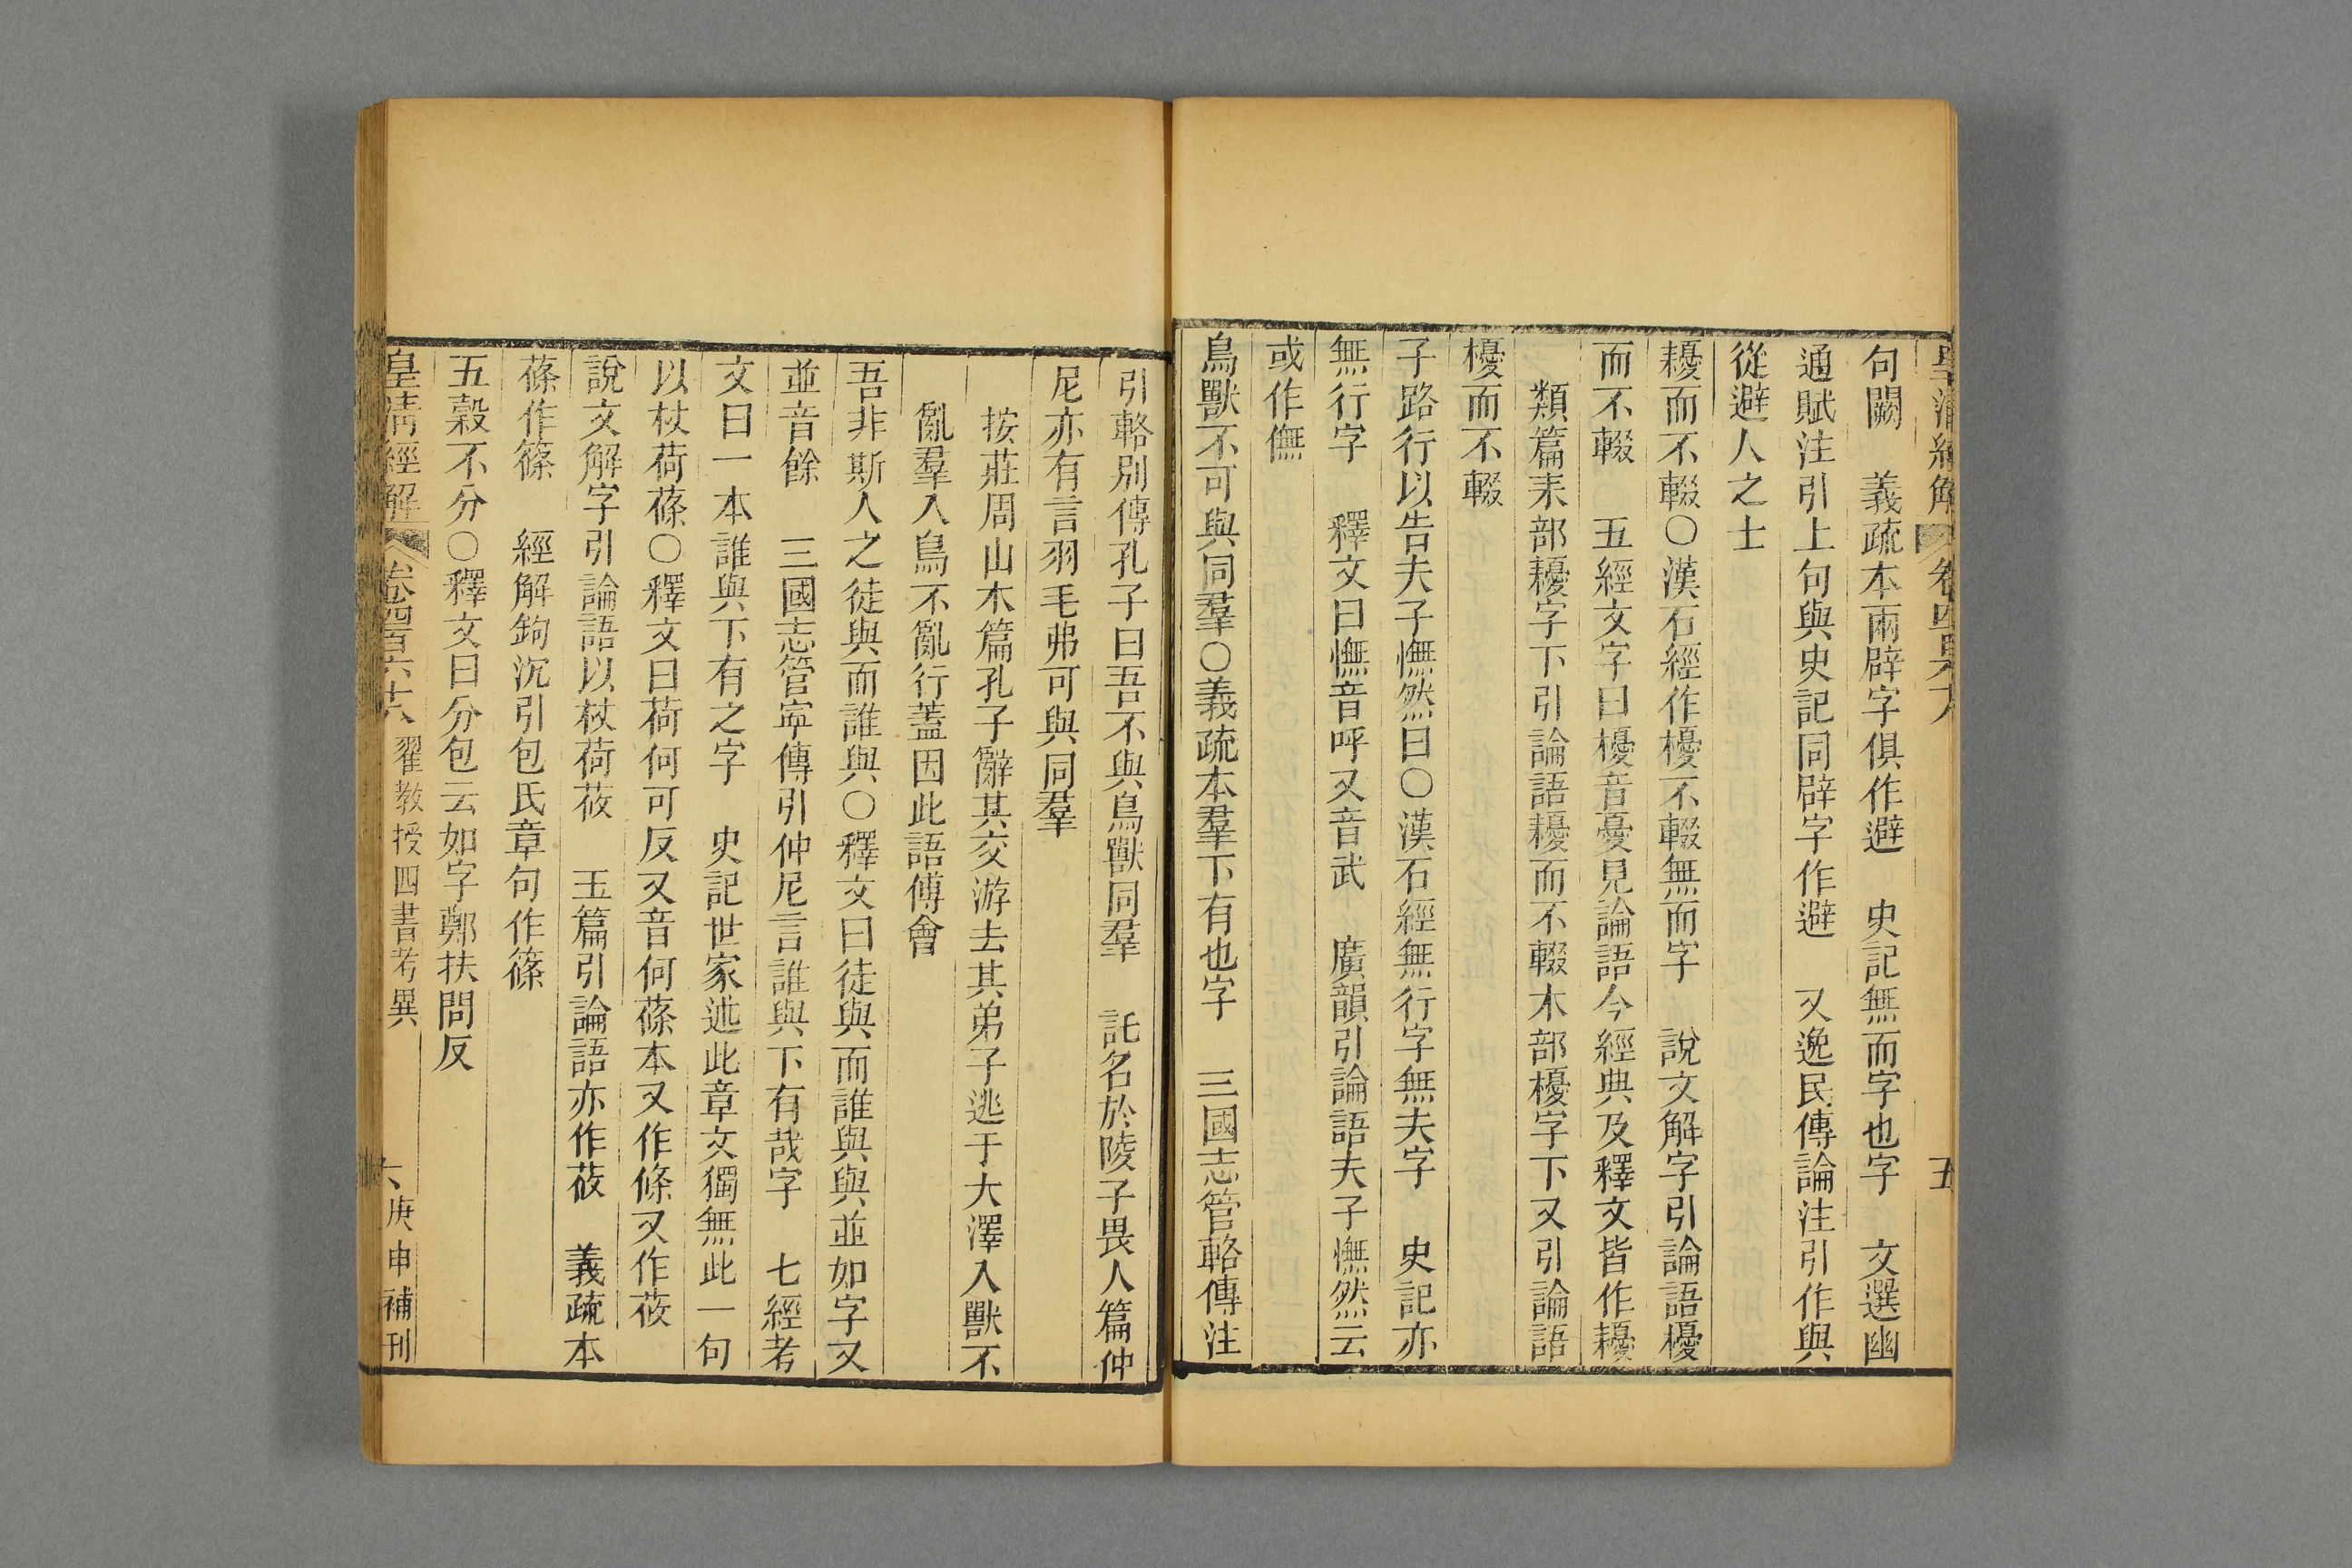 皇清經解 卷四百六 五
句闕　義疏本兩辟字俱作避　史記無而字也字　文選幽
通賦注引上句與史記同辟字作避　又逸民傳論注引作與
從避人之士
耰而不輟○漢石經作櫌不輟無而字　說文解字引論語櫌
而不輟　五經文字曰櫌音憂見論語今經典及釋文皆作耰
類篇耒部耰字下引論語耰而不輟木部櫌字下又引論語
櫌而不輟
子路行以告夫子憮然曰○漢石經無行字無夫字　史記亦
無行字　釋文曰憮音呼又音武　廣韻引論語夫子憮然云
或作㒇
鳥獸不可與同羣○義疏本羣下有也字　三國志管輅傳注
引輅別傳孔子曰吾不與鳥獸同羣　託名於陵子畏人篇仲
尼亦有言羽毛弗可與同羣
按莊周山木篇孔子辭其交游去其弟子逃于大澤入獸不
亂羣入鳥不亂行蓋因此語傅會
吾非斯人之徒與而誰與○釋文曰徒與而誰與與並如字又
並音餘　三國志管寧傳引仲尼言誰與下有哉字　七經考
文曰一本誰與下有之字　史記世家述此章文獨無此一句
以杖荷蓧○釋文曰荷何可反又音何蓧本又作條又作莜
說文解字引論語以杖荷莜　玉篇引論語亦作莜　義疏本
蓧作篠　經解鉤沉引包氏章句作篠
五穀不分○釋文曰分包云如字鄭扶問反
皇清經解 卷四百六十八 翟教授四書考異 六 庚申補刊